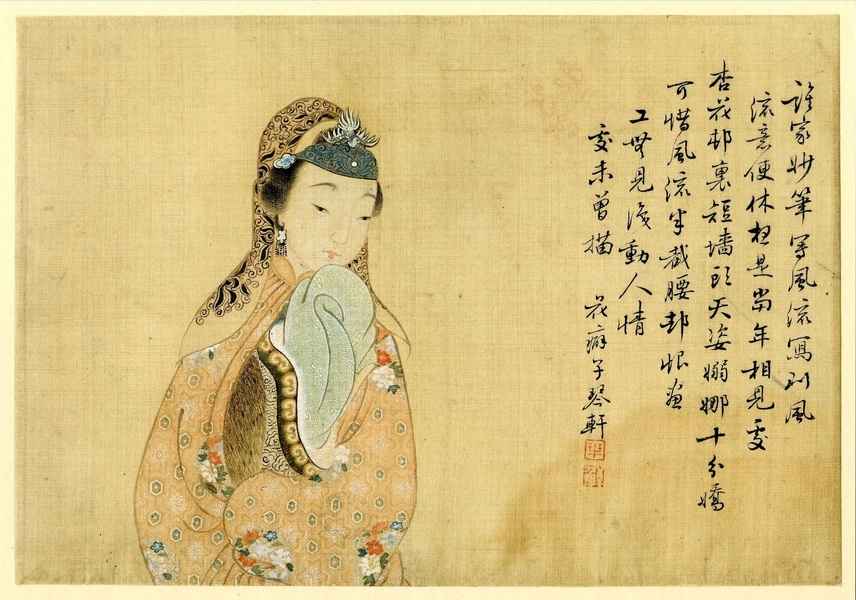 誰家妙筆寫風流寫到風
流意便休想是當年相見處
杏花邨裏短墻頭天姿嫋娜十分嬌
可惜風流半截腰却恨畫
工無見動人情
處未曾描
花癖子琴軒